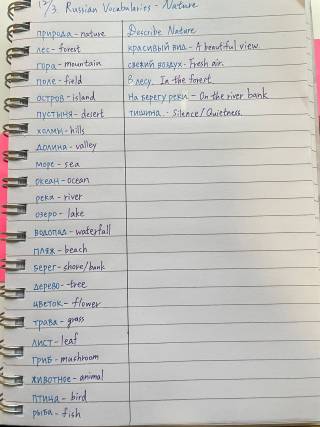 13/3. Russian Vocabularies - Nature
природа - nature
лес - forest
гора - mountain
поле - field
остров - island
пустыня - desert
холмы - hills
долина - valley
море - sea
океан - ocean
река - river
озеро - lake
водопад - waterfall
пляж - beach
берег - shore/bank
дерево - tree
цветок - flower
трава - grass
лист - leaf
гриб - mushroom
животное - animal
птица - bird
рыба - fish
Describe Nature
красивый вид - A beautiful view
свежий воздух - Fresh air
в лесу - In the forest
На берегу реки - On the river bank
тишина - Silence/Quietness